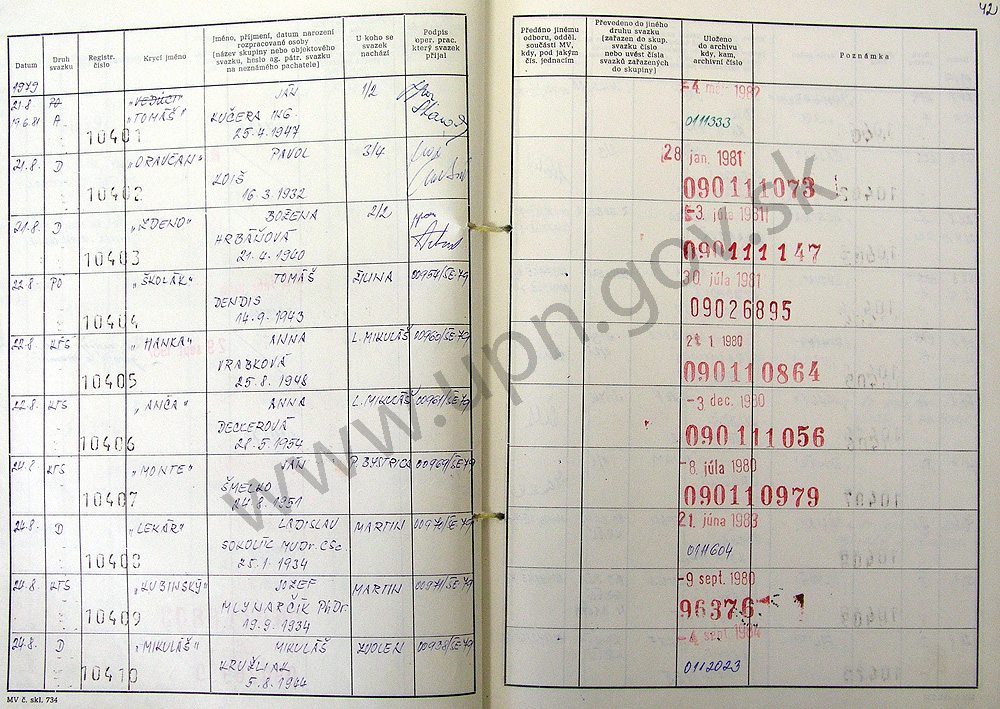 42
Datum
Druh svazku
Registr. číslo
Krycí jméno
Jméno, příjmení, datum narození
rozpracované osoby
(název skupiny nebo objektového
svazku, heslo ag. pátr. svazku
na neznámého pachatele)
U koho se
svazek
nachází
Podpis
oper. prac.
který svazek
přijal
Předáno jinému
odboru, odděl.
součásti MV,
kdy, pod jakým
čís. jednacím
Převedeno do jiného
druhu svazku
(zařazen do skup.
svazku číslo
nebo uvést čísla
svazků zařazených
do skupiny)
Uloženo
do archivu
kdy, kam,
archivní číslo
Poznámka
1979
21.8 PO "VEDÚCI" JÁN 1/2
19.6.81 A "TOMÁŠ" KUČERA ING. 0111333
10401 25.4.1947
21.8. D "ORAVČAN" PAVOL 3/4 28 jan. 1981
LOIŠ 090111073
10402 16.3.1932
21.8. D "ZDENO" BOŽENA 2/2 -3. júla 1981
HRBÁŇOVÁ 090111147
10403 21.4.1940
22.8. PO "ŠKOLÁK" TOMÁŠ ŽILINA 00954/SE-79 30. júla 1981
DENDIS 09026895
10404 14.9.1943
22.8. KTS "HANKA" ANNA L. MIKULÁŠ 00960/SE-79 1 1980
VRABKOVÁ 090110864
10405 25.8.1948
22.8. KTS "ANČA" ANNA L. MIKULÁŠ 00961/SE-79 -3. dec. 1980
DECKEROVÁ 090111056
10406 28.5.1954
24.8. KTS "MONTE" JÁN P. BYSTRICA 00969/SE-79 -8. júla 1980
ŠMELKO 090110979
10407 24.8.1951
24.8. D "LEKÁR" LADISLAV MARTIN 00970/SE-79 21. júna 1983
SOKOLÍK MUDr. CSc. 0111604
10408 25.1.1934
24.8. KTS "KUBINSKÝ" JOZEF MARTIN 00971/SE-79 -9 sept. 1980
MLYNARČÍK PhDr. 96376
10409 19.9.1934
24.8. D "MIKULÁŠ" MIKULÁŠ ZVOLEN 00938/SE-79 -4. sept. 1984
KRUŽLIAK 0112023
10410 5.8.1944
MV č. skl. 734
www.upn.gov.sk